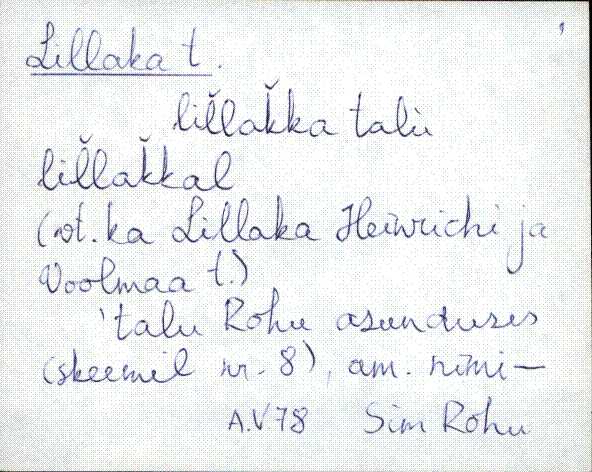 Lillaka t.
lil̆lak̆ka talù
lil̆lak̆kal
(vt. ka Lillaka Heinrichi ja
Voolmaa t.)
'talu Rohu asunduses
(skeemil nr. 8), am. nimi—
A.V78 Sim Rohu